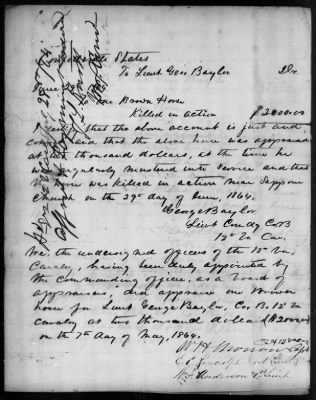 Confederate States
To Lieut Geo. Baylor Dr.
June
One Brown Horse
Killed in action $2000.00
I certify that the above account is just and
correct and that the above horse was appraised
at two thousand dollars, at the time he
was regularly mustered into service and that
the horse was killed in action near Sappone
Church on the 29th day of June, 1864.
George Baylor
Lieut Comdg Co. B
12th Va Cav.
We, the undersigned officers of the 12th Va.
Cavalry, having been duly appointed by
the commanding officer, as a board of
appraisers, did appraise one Brown
horse for Lieut George Baylor, Co. B. 12th Va
cavalry at two thousand dollars ($2000.00)
on the 7th day of May, 1864.
Lieut
Wm. Anderson 1st Lieut